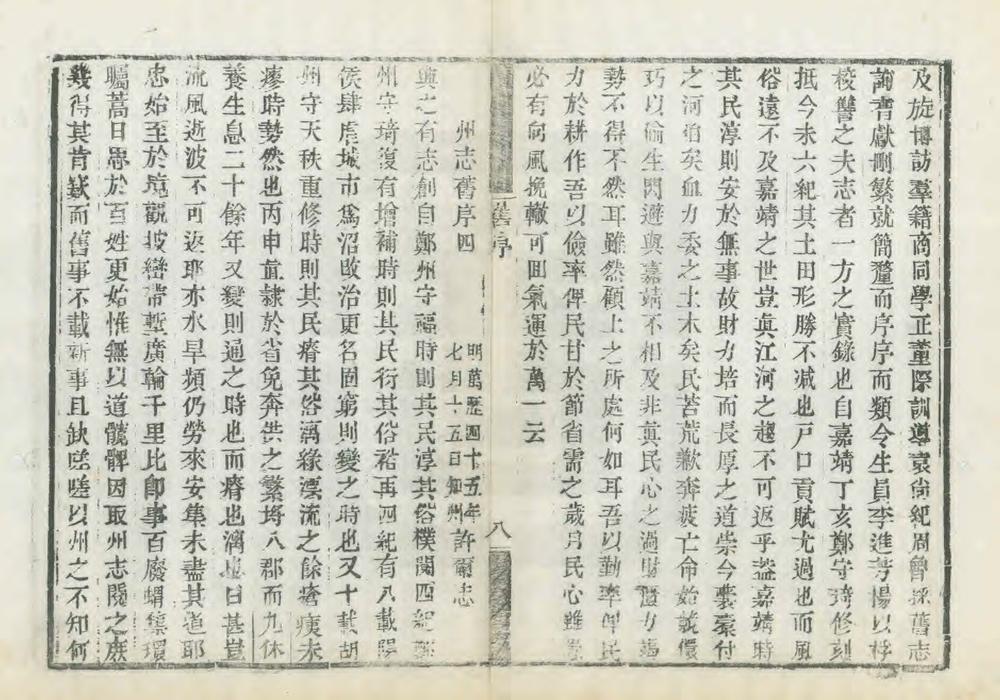 及旋博訪羣籍商同學正董際訓導袁尚紀周曾採舊志
詢耆獻刪繁就簡釐而序序而類今生員李進芳楊以桴
校讐之夫志者一方之實錄也自嘉靖丁亥鄭守琦修刻
抵今未六紀其土田形勝不减也戸口貢賦尤過也而風
俗遠不及嘉靖之世豈眞江河之趨不可返乎葢嘉靖時
其民淳則安於無事故財力培而長厚之道崇今囊槖付
之河伯矣血力委之土木矣民苦荒歉奔疲亡命始競儇
巧以偷生閃避與嘉靖不相及非眞民心之過財殫力竭
勢不得不然耳雖然顧上之所處何如耳吾以勤率俾民
力於耕作吾以儉率俾民甘於節省需之歲月民心雖
必有向風挽轍可囬氣運於萬一云
舊序
八
州志舊序四
明萬歷四十五年
七月十五日知州許爾忠
興之有志創自鄭州守福時則其民淳其俗樸閱四紀
州守琦復有增補時則其民衍其俗裕再四紀有八載陽
侯肆虐城市爲沼改治更名固窮則變之時也又十載胡
州守天秩重修時則其民瘠其俗漓緣漂流之餘瘡痍未
瘳時勢然也丙申直隸於省免奔供之繁埓八郡而九休
養生息二十餘年又變則通之時也而瘠也漓也日甚豈
流風逝波不可返耶亦水旱頻仍勞來安集未盡其道耶
忠始至於境觀披巒帶塹廣輪千里比卽事百廢蝟集環
矚蒿目思於百姓更始惟無以道髖髀因取州志閱之庶
幾得其肯綮而舊事不載新事且缺嗟嗟以州之不知何